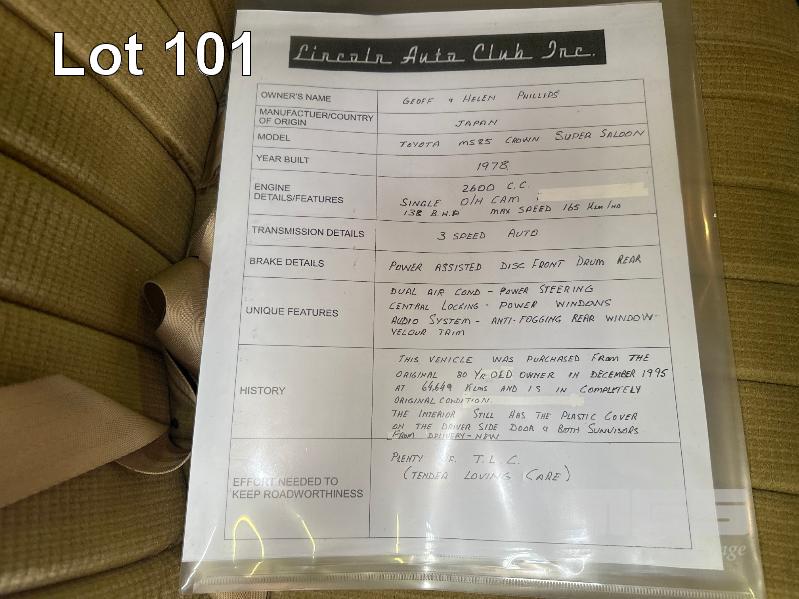 Lot 101
Lincoln Auto Club Inc.
OWNER'S NAME GEOFF & HELEN PHILLIPS
MANUFACTUER/COUNTRY
OF ORIGIN JAPAN
MODEL TOYOTA MS85 CROWN SUPER SALOON
YEAR BUILT 1978
ENGINE
DETAILS/FEATURES
2600 C.C.
SINGLE O/H CAM
138 B.H.P MAX SPEED 165 Klm/HR
TRANSMISSION DETAILS 3 SPEED AUTO
BRAKE DETAILS POWER ASSISTED DISC FRONT DRUM REAR
UNIQUE FEATURES
DUAL AIR COND - POWER STEERING
CENTRAL LOCKING - POWER WINDOWS
AUDIO SYSTEM - ANTI-FOGGING REAR WINDOW
VELOUR TRIM
HISTORY
THIS VEHICLE WAS PURCHASED FROM THE
ORIGINAL 80 YR OLD OWNER IN DECEMBER 1995
AT 64,649 KLMS AND IS IN COMPLETELY
ORIGINAL CONDITION.
THE INTERIOR STILL HAS THE PLASTIC COVER
ON THE DRIVER SIDE DOOR & BOTH SUNVISORS
FROM DELIVERY - NEW
EFFORT NEEDED TO
KEEP ROADWORTHINESS
PLENTY OF T.L.C.
(TENDER LOVING CARE)